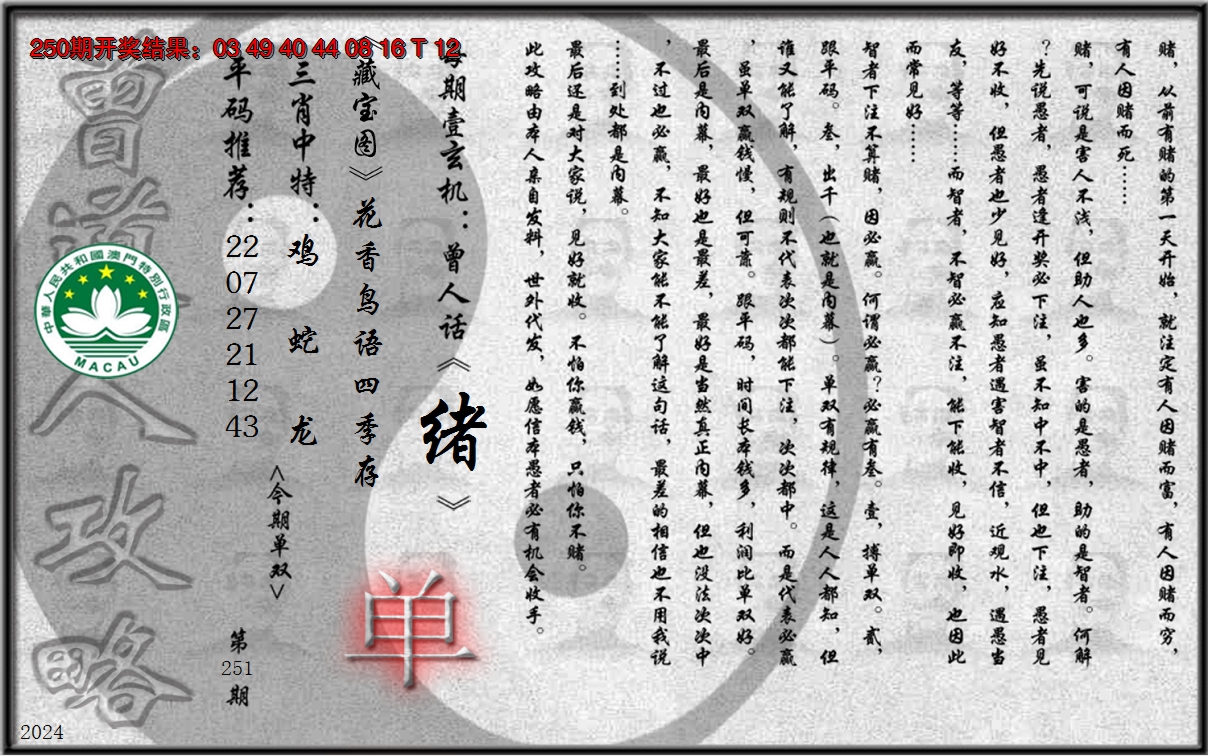 250期开奖结果：03 49 40 44 08 16 T 12
赌，从前有赌的第一天开始，就注定有人因赌而富，有人因赌而穷，
有人因赌而死……
赌，可说是害人不浅，但助人也多。害的是愚者，助的是智者。何解
？先说愚者，愚者逢开奖必下注，虽不知中不中，但也下注，愚者见
好不收，但愚者也少见好，应知愚者遇害智者不信，近观水，遇愚当
友，等等……而智者，不智必赢不注，能下能收，见好即收，也因此
而常见好……
智者下注不算赌，因必赢。何谓必赢？必赢有叁。壹，搏单双。贰，
跟平码。叁，出千（也就是内幕）。单双有规律，这是人人都知，但
谁又能了解，有规则不代表次次都能下注，次次都中。而是代表必赢
，虽单双赢钱慢，但可靠。跟平码，时间长本钱多，利润比单双好。
最后是内幕，最好也是最差，最好是当然真正内幕，但也没法次次中
，不过也必赢，不知大家能不能了解这句话，最差的相信也不用我说
……到处都是内幕。
最后还是对大家说，见好就收。不怕你赢钱，只怕你不赌。
此攻略由本人亲自发料，世外代发，如愿信本愚者必有机会收手。
每期壹玄机：曾人话《绪》
《藏宝图》花香鸟语四季存
三肖中特：鸡 蛇 龙
<今期单双>
单
平码推荐：22 07 27 21 12 43
第251期
曾道人攻略
中華人民共和國澳門特別行政區
MACAU
2024